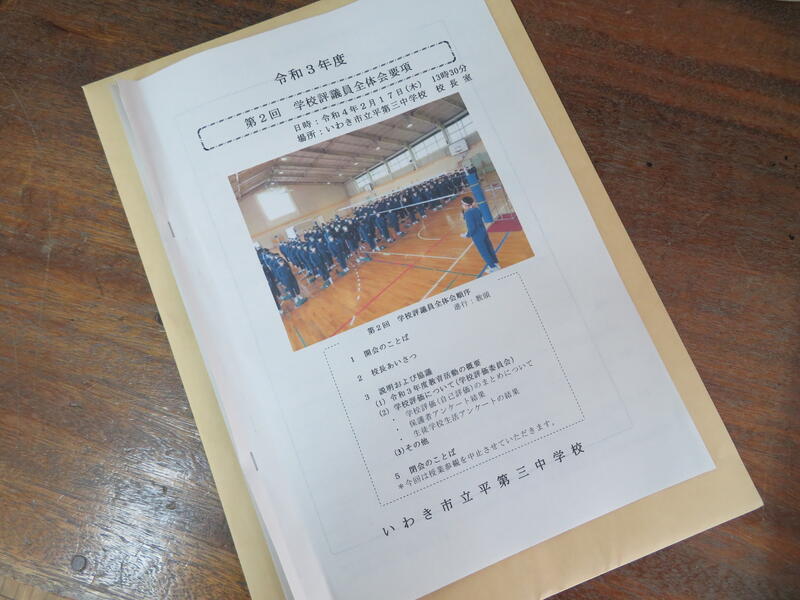 令和３年度
第２回　学校評議員全体会要項
日時：令和４年２月１７日(木)　13時30分
場所：いわき市立平第三中学校　校長室
第２回　学校評議員全体会順序
進行：教頭
１　開会のことば
２　校長あいさつ
３　説明および協議
(1) 令和３年度教育活動の概要
(2) 学校評価について(学校評価委員会)
・　学校評価(自己評価)のまとめについて
・　保護者アンケート結果
・　生徒学校生活アンケートの結果
(3)その他
５　閉会のことば
＊今回は授業参観を中止させていただきます。
いわき市立平第三中学校